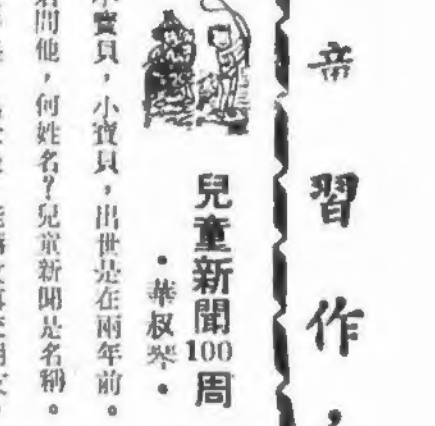 習作，
兒童新聞100周
·華叔琴·
小寶貝，小寶貝，出世是在兩年前。
若問他，何姓名？兒童新聞是名稱。